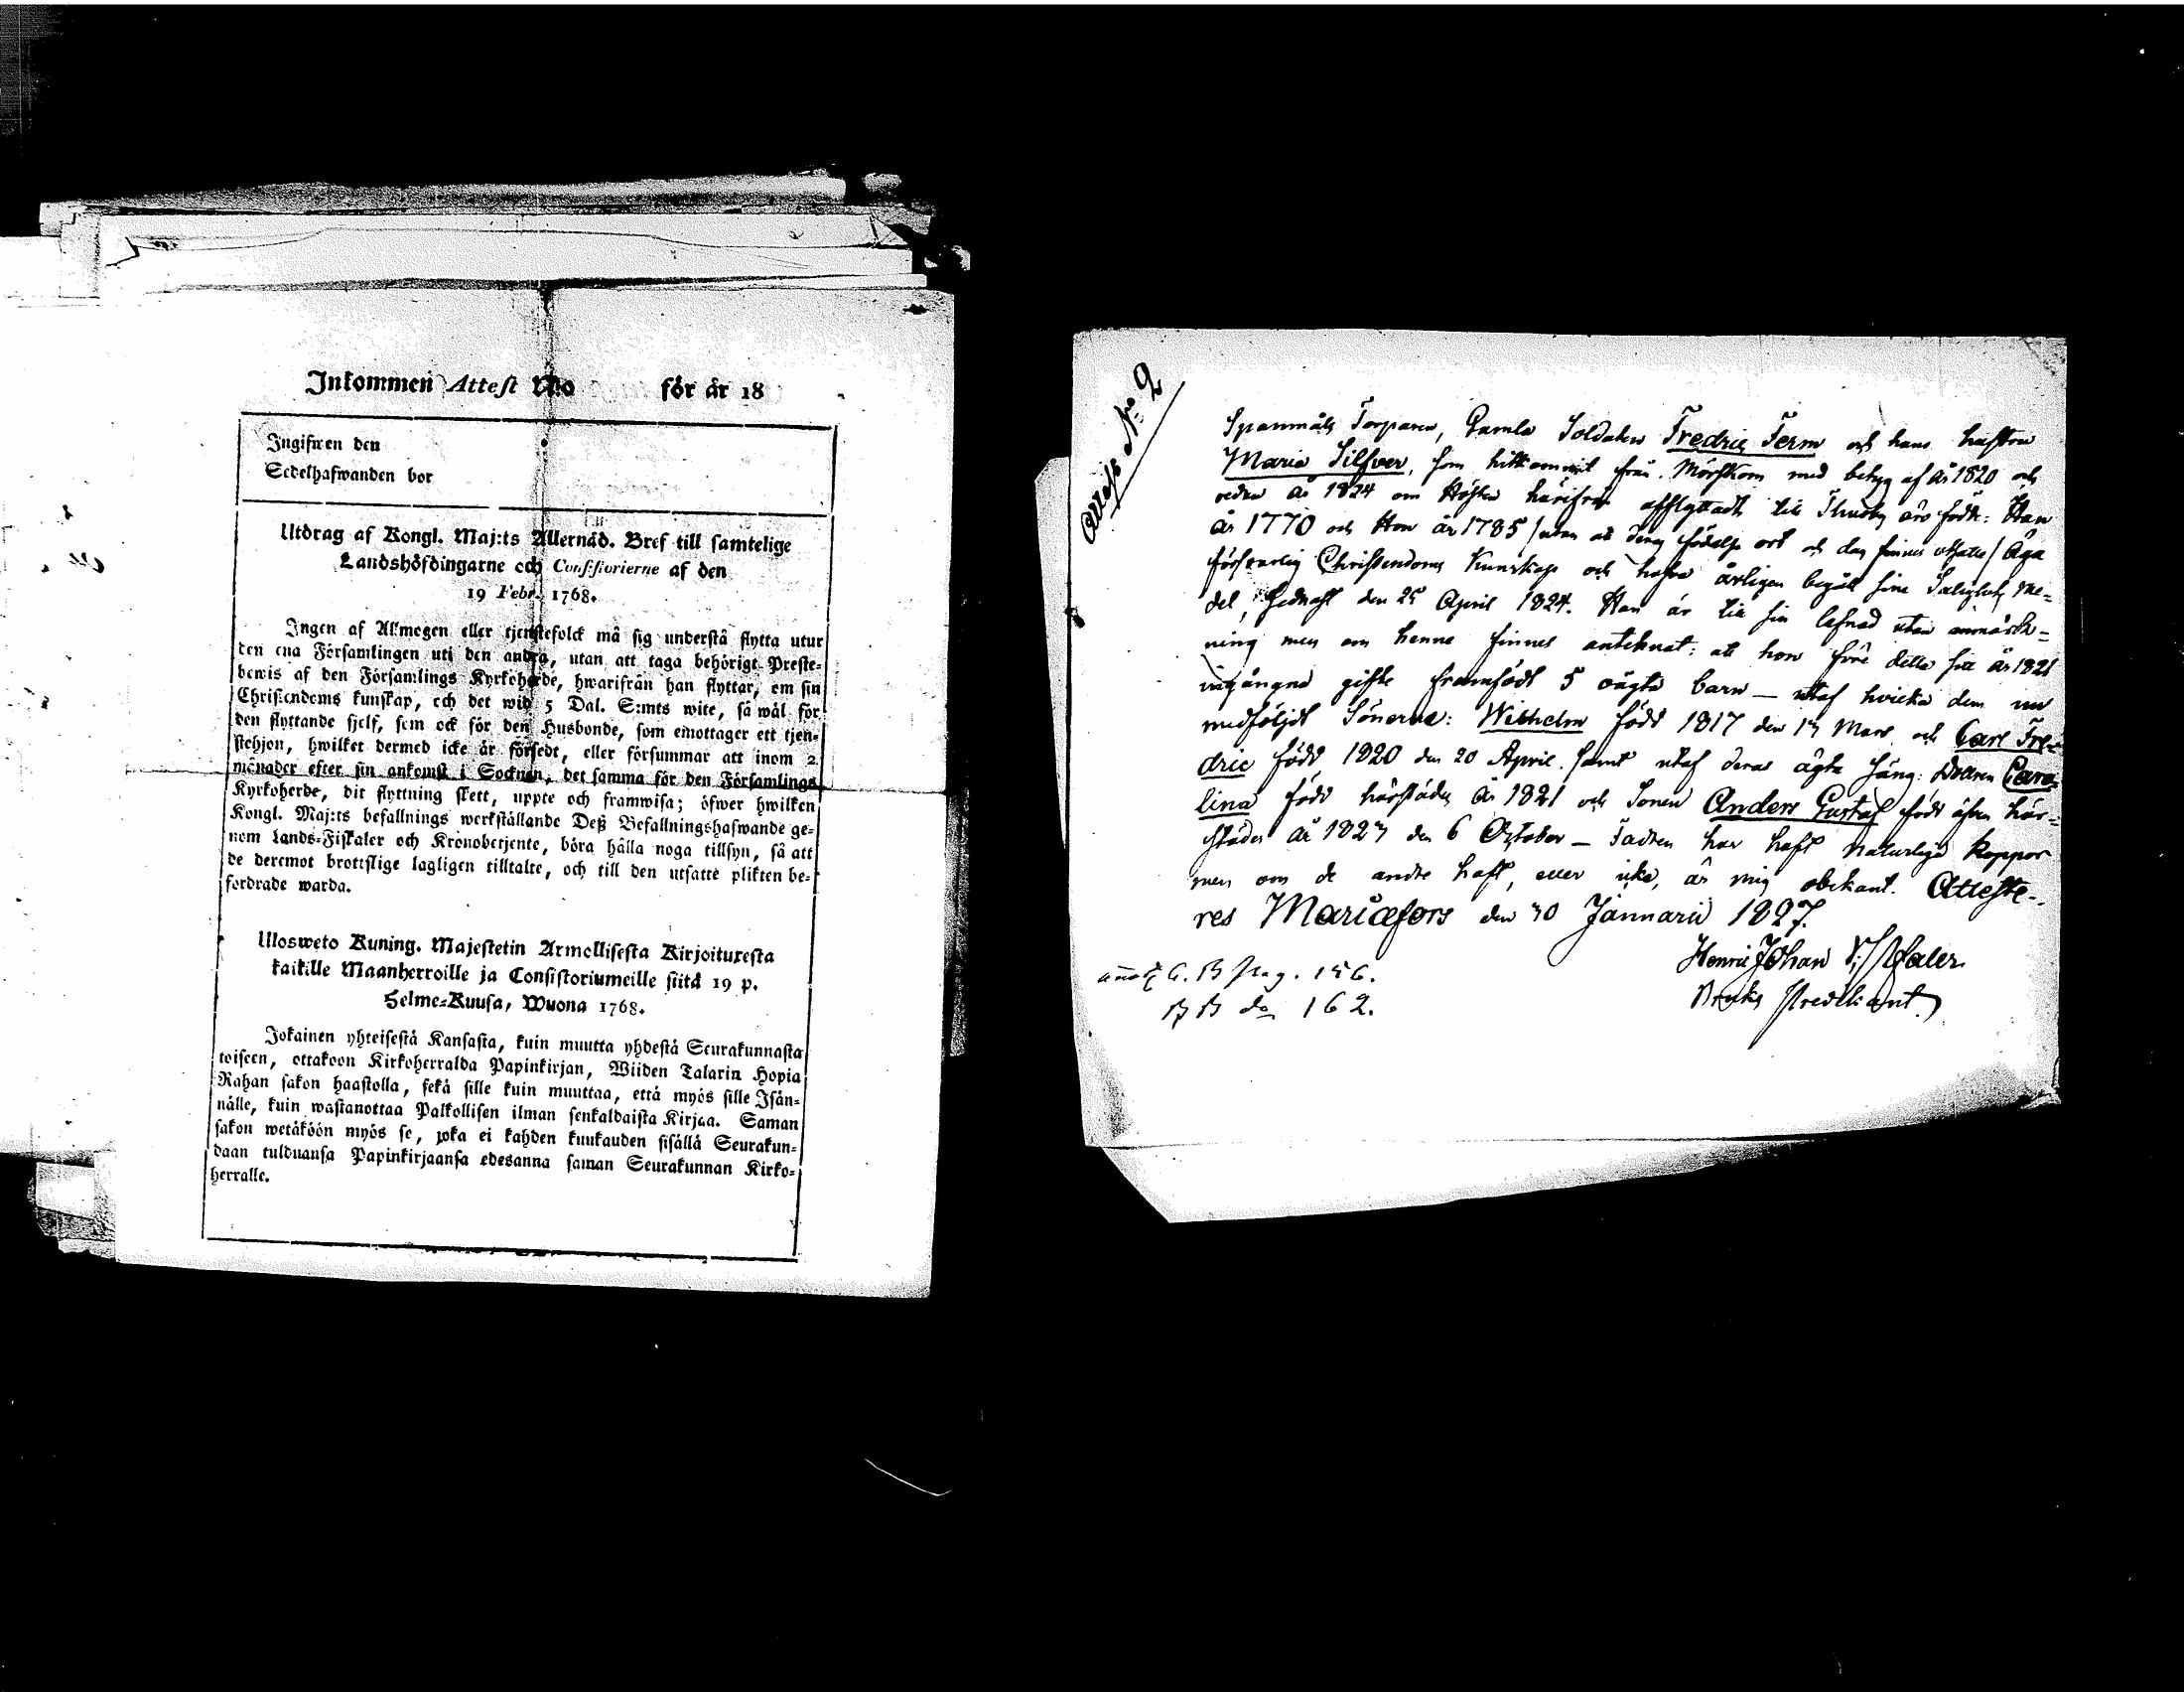 Inkommen Attest N:o för år 18
Ingifwen den
Sedelhafwanden bor
Utdrag af Kongl. Maj:ts Allernåd. Bref till samtelige
Landshöfdingarne och Consistorierne af den
19 Febr. 1768.
Ingen af Allmogen eller tjenstefolck må sig understå flytta utur
den ena Församlingen uti den andra, utan att taga behörigt Preste-
bewis af den Församlings Kyrkoherde, hwarifrån han flyttar, om sin
Christendoms kunskap, och det wid 5 Dal. S:mts wite, så wäl för
den flyttande sjelf, som ock för den Husbonde, som emottager ett tjen-
stehjon, hwilket dermed icke är försedt, eller försummar att inom 2
månader efter sin ankomst i Socknen, det samma för den Församlings
Kyrkoherde, dit flyttning skett, uppte och framwisa; öfwer hwilken
Kongl. Maj:ts befallnings werkställande Deß Befallningshafwande ge-
nom Lands-Fiskaler och Kronobetjente, böra hålla noga tillsyn, så att
de deremot brottslige lagligen tilltalte, och till den utsatte plikten be-
fordrade warda.
Ulosweto Kuning. Majestetin Armollisesta Kirjoituxesta
kaikille Maanherroille ja Consistoriumeille siitä 19 p.
Helme-Kuusa, Wuona 1768.
Jokainen yhteisestä Kansasta, kuin muutta yhdestä Seurakunnasta
toiseen, ottakoon Kirkoherralda Papinkirjan, Wiiden Talarin Hopia
Rahan sakon haastolla, sekä sille kuin muuttaa, että myös sille Isän-
nälle, kuin wastanottaa Palkollisen ilman senkaldaista Kirjaa. Saman
sakon wetäköön myös se, joka ei kahden kuukauden sisällä Seurakun-
daan tulduansa Papinkirjaansa edesanna saman Seurakunnan Kirko-
herralle.
Attest No 2
Spanmåls Torparen, Gamla Soldaten Fredric Term och hans hustru
Maria Silfver, som hitkommit från Mörskom med betyg af år 1820 och
redan år 1824 om Hösten härifrån afflyttadt till Thusby äro födde: Han
år 1770 och Hon år 1785 /utan at deras födelse ort och dag finnes utsatte/ Äga
försvarlig Christendoms Kunskap och hafva årligen begått sine Salighets me-
del, sednast den 25 April 1824. Han är till sin lefnad utan anmärk-
ning men om henne finnes anteknat: att hon före detta sitt år 1821
ingångne gifte framfödt 5 oägta barn — utaf hvilka dem nu
medföljdt Sönerne: Wilhelm född 1817 den 17 Mars och Carl Fre-
dric född 1820 den 20 April. samt utaf deras ägta säng: Dottren Caro-
lina född härstädes år 1821 och Sonen Anders Gustaf född äfven här-
städes år 1823 den 6 October — Fadren har haft naturliga koppor
men om de andre haft, eller icke, är mig obekant. Atteste-
res Mariæfors den 30 Januarii 1827.
Henric Johan
Bruks Predikant
annot: C. B pag. 156.
B B do 162.